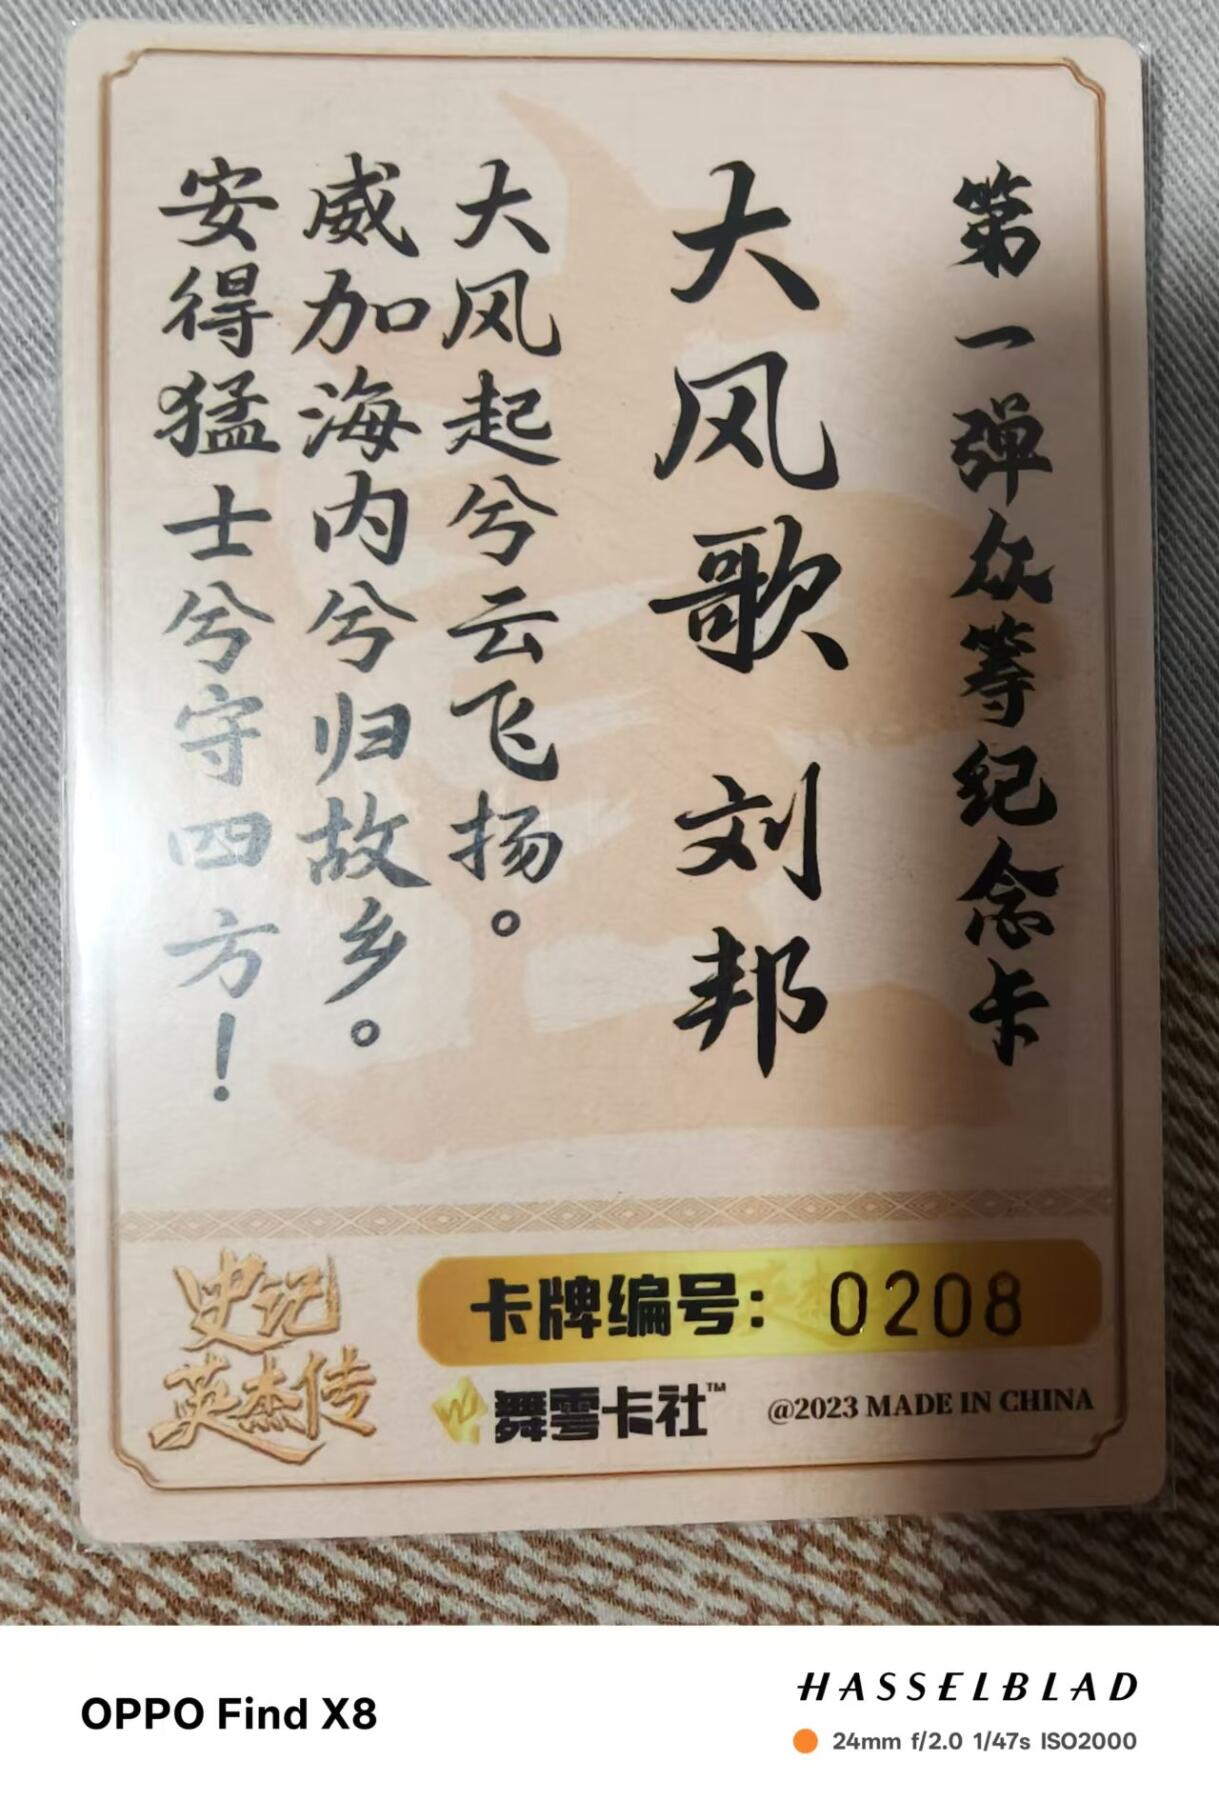 第一弹众筹纪念卡
大风歌 刘邦
大风起兮云飞扬。
威加海内兮归故乡。
安得猛士兮守四方！
史记
英杰传
卡牌编号：0208
舞雩卡社™
@2023 MADE IN CHINA
OPPO Find X8
HASSELBLAD
24mm f/2.0 1/47s ISO2000